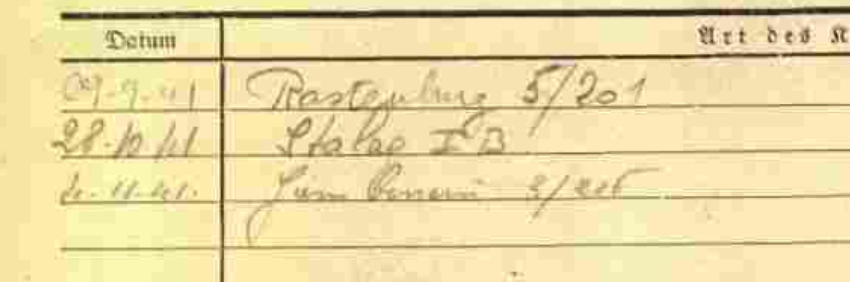 Datum Art des K
09-9-41 Rastenburg 5/201
28.10.41 Stalag I B
4.-11.-41.